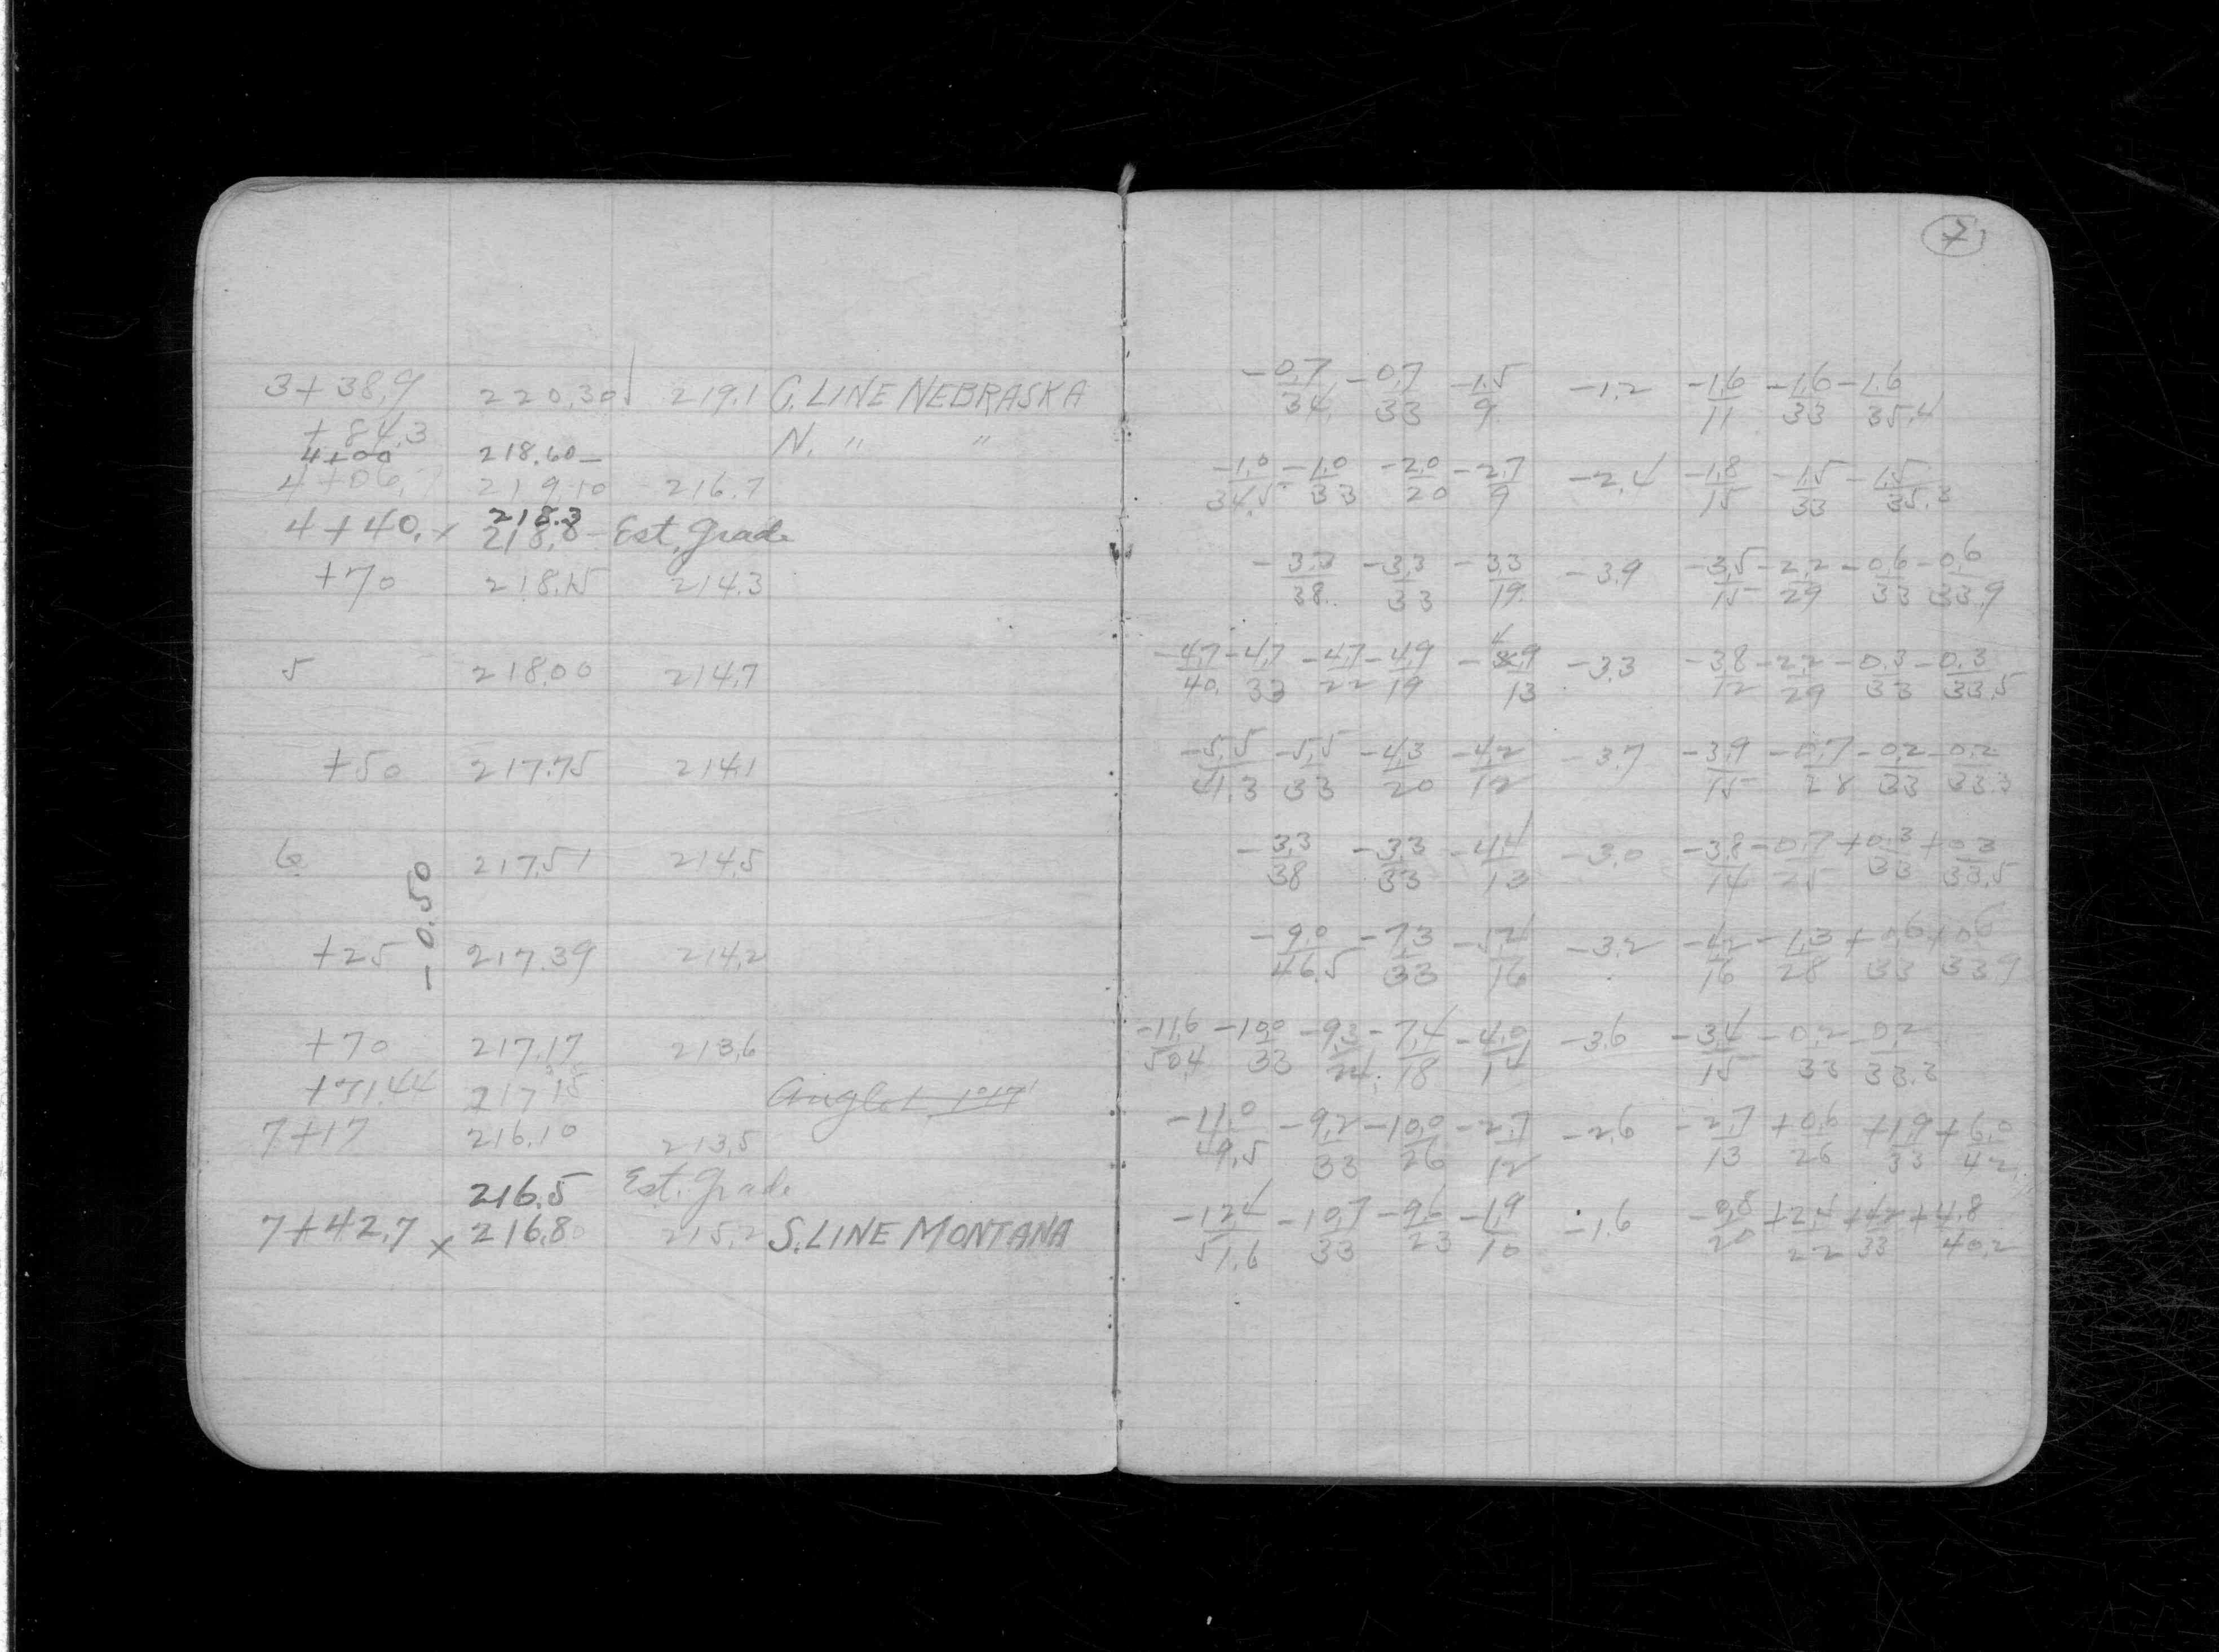 3+38.9 220.30 219.1 C. LINE NEBRASKA
+84.3 N. " "
4+00 218.60
4+06. 219.10 216.7
218.3
4+40. x 218.8 Est. Grade
+70 218.15 214.3
5 218.00 214.7
+50 217.75 214.1
6 217.51 214.5
-0.50
+25 217.39 214.2
+70 217.17 213.6
+71.44 217.15 Angle 1°17'
7+17 216.10 213.5
216.5 Est. Grade
7+42.7 x 216.80 215.2 S. LINE MONTANA
7
-0.7 -0.7 -1.5 -1.2 -1.6 -1.6 -1.6
34. 33 9 11 33 35.4
-1.0 -1.0 -2.0 -2.7 -2.4 -1.8 -1.5 -1.5
34.5 33 20 9 15 33 35.3
-3.3 -3.3 -3.3 -3.9 -3.5 -2.2 -0.6 -0.6
38. 33 19. 15 29 33 33.9
-4.7 -4.7 -4.7 -4.9 -4.9 -3.3 -3.8 -2.2 -0.3 -0.3
40. 33 22 19 13 12 29 33 33.5
-5.5 -5.5 -4.3 -4.2 -3.7 -3.9 -0.7 -0.2 -0.2
41.3 33 20 12 15 28 33 33.3
-3.3 -3.3 -4.4 -3.0 -3.8 -0.7 +0.3 +0.3
38 33 13 14 25 33 33.5
-9.0 -7.3 -5.2 -3.2 -4.2 -1.3 +0.6 +0.6
46.5 33 16 16 28 33 33.9
-11.6 -10.0 -9.3 -7.4 -4.0 -3.6 -3.4 -0.2 -0.2
50.4 33 24. 18 14 15 33 33.3
-11.0 -9.2 -10.0 -2.7 -2.6 -2.7 +0.6 +1.9 +6.0
49.5 33 26 12 13 26 33 42.
-12.4 -10.7 -9.6 -1.9 -1.6 -0.8 +2.4 +4.2 +4.8
51.6 33 23 10 20 22 33 40.2